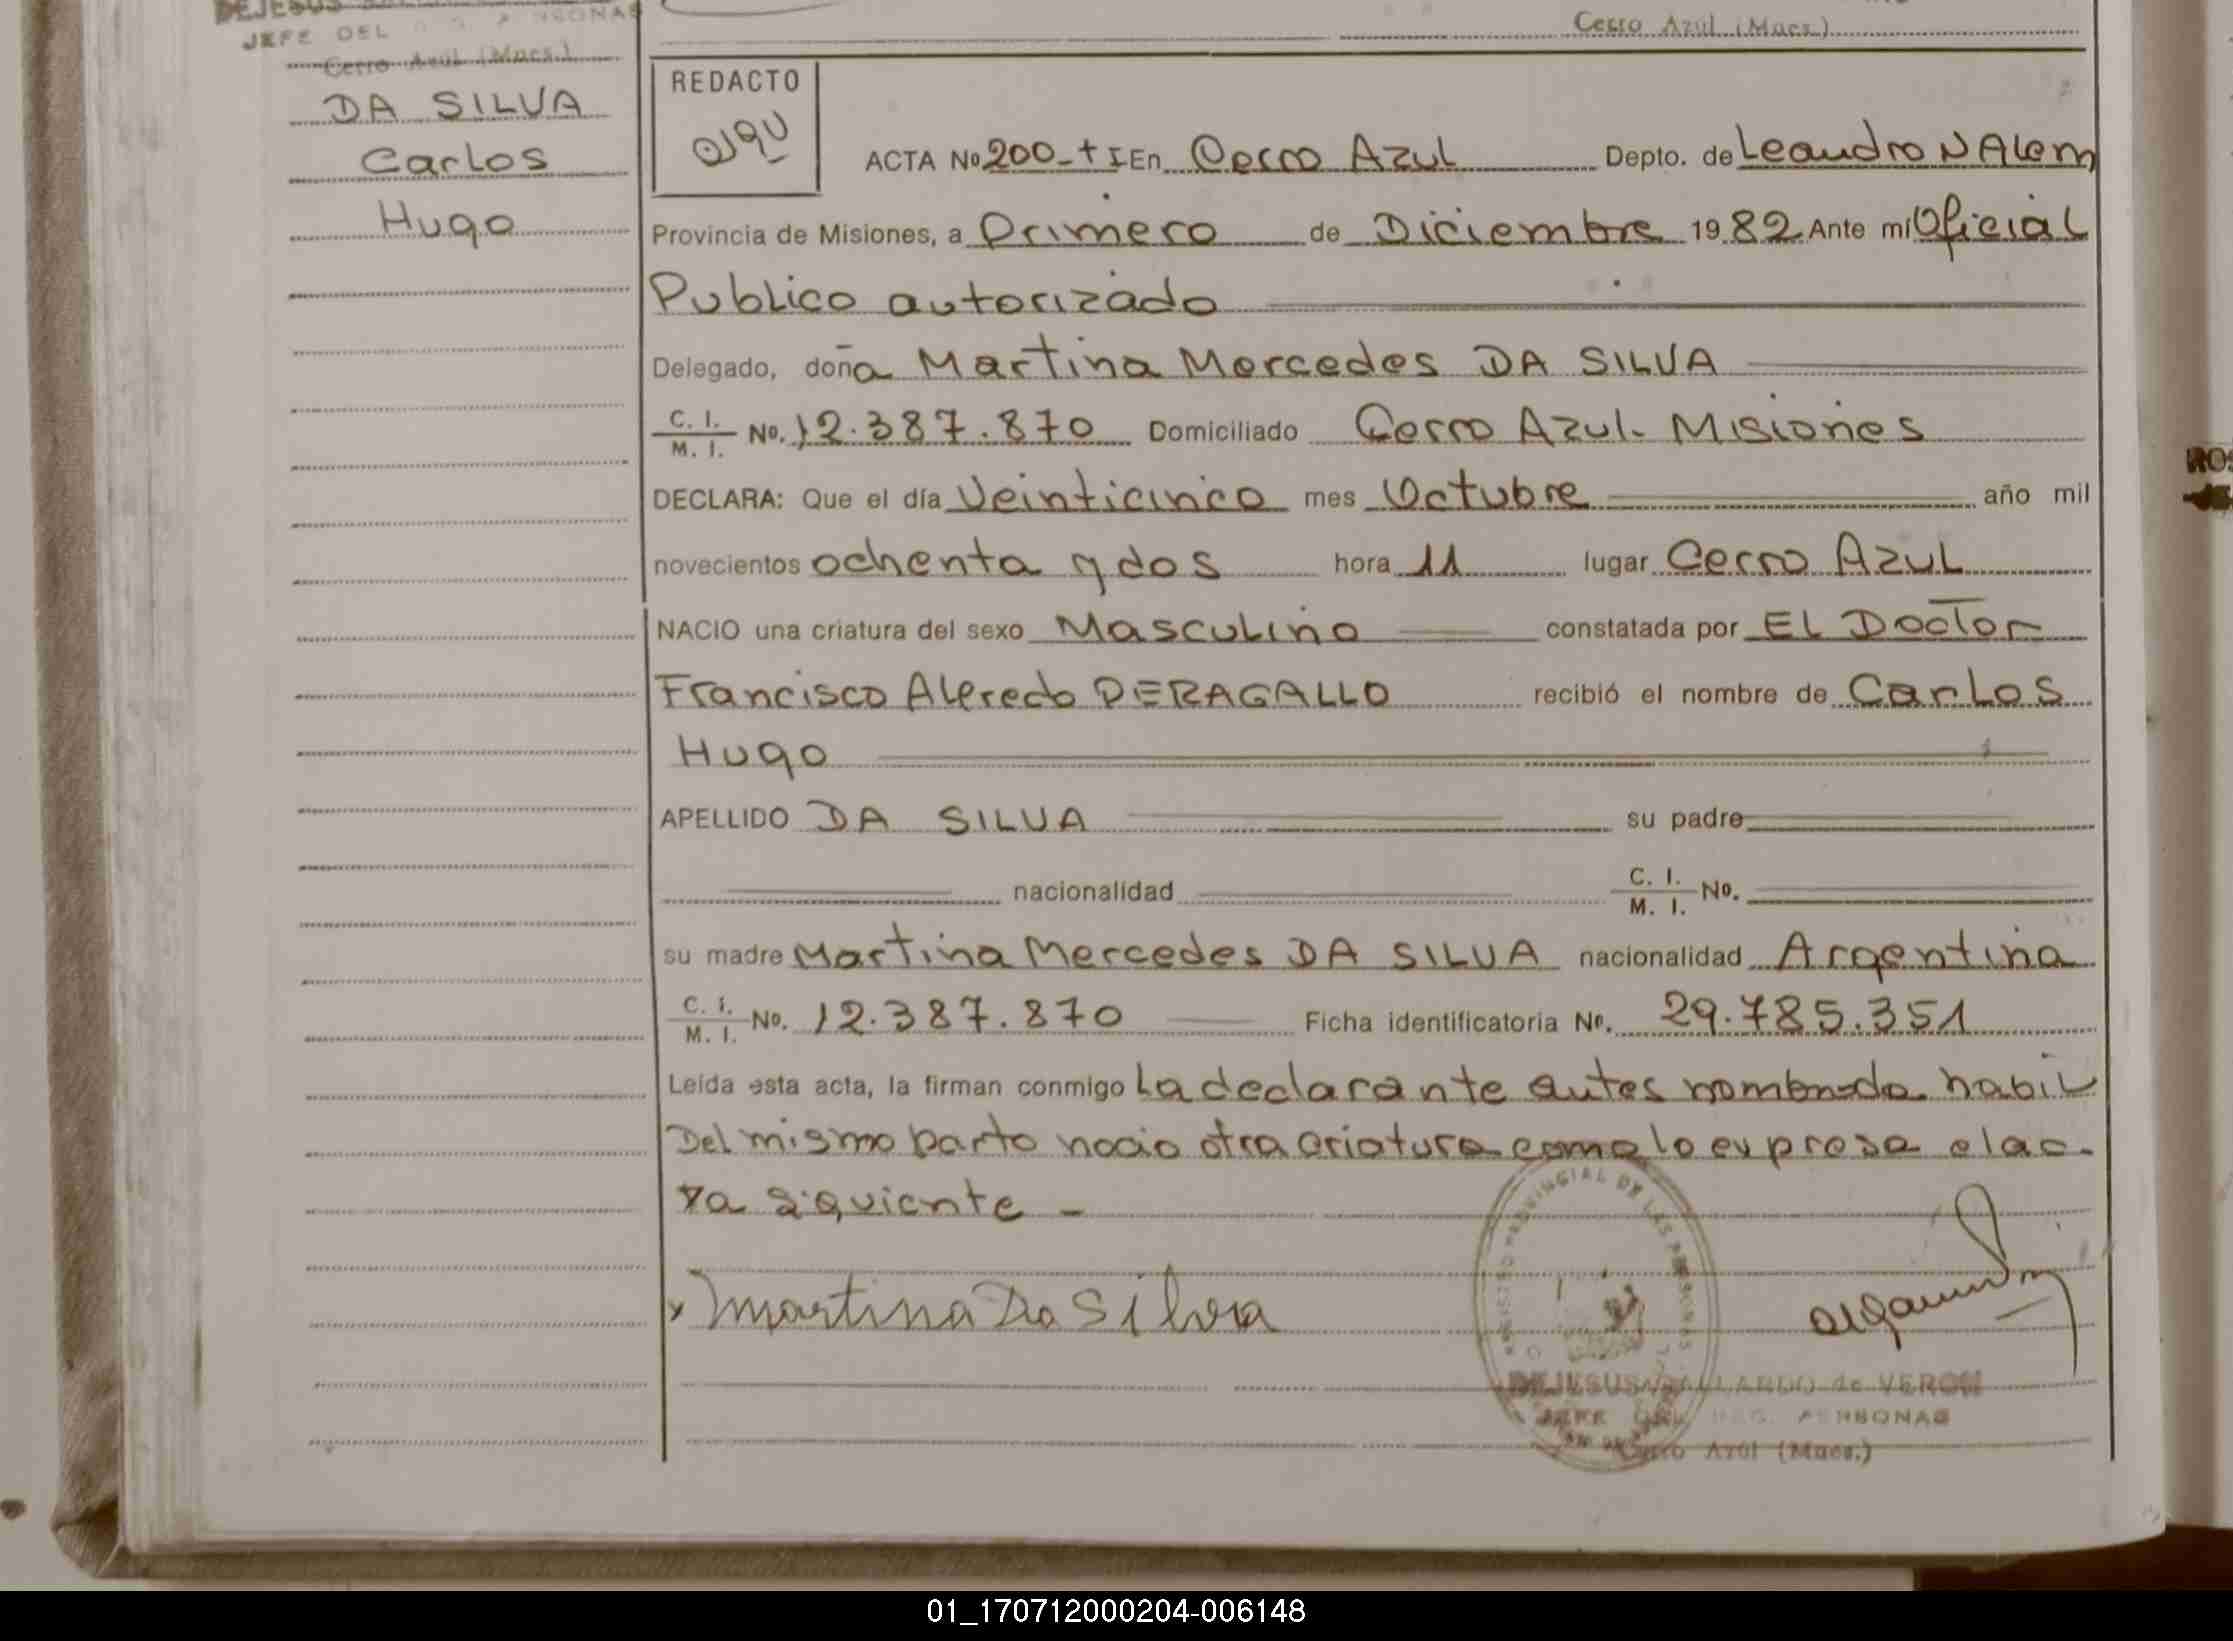 DEJESUS
JEFE DEL PERSONAS
Cerro Azul (Mnes.)
Cerro Azul (Mnes.)
DA SILVA
Carlos
Hugo
REDACTO
ACTA No 200-tI En Cerro Azul Depto. de Leandro N Alem
Provincia de Misiones, a Primero de Diciembre 1982 Ante mi Oficial
Publico autorizado
Delegado, doña Martina Mercedes DA SILVA
C. I. / M. I. No. 12.387.870 Domiciliado Cerro Azul- Misiones
DECLARA: Que el día Veinticinco mes Octubre año mil
novecientos ochenta y dos hora 11 lugar Cerro Azul
NACIO una criatura del sexo Masculino constatada por EL Doctor
Francisco Alfredo PERAGALLO recibió el nombre de Carlos
Hugo
APELLIDO DA SILVA su padre
nacionalidad C. I. / M. I. No.
su madre Martina Mercedes DA SILVA nacionalidad Argentina
C. I. / M. I. No. 12.387.870 Ficha identificatoria No. 29.785.351
Leída esta acta, la firman conmigo La declarante antes nombrada habil
Del mismo parto nacio otra criatura como lo expresa el ac-
ta siguiente -
Martina Da Silva
REGISTRO PROVINCIAL DE LAS PERSONAS
DEJESUS GALLARDO de VERON
JEFE DEL REG. PERSONAS
Cerro Azul (Mnes.)
01_170712000204-006148